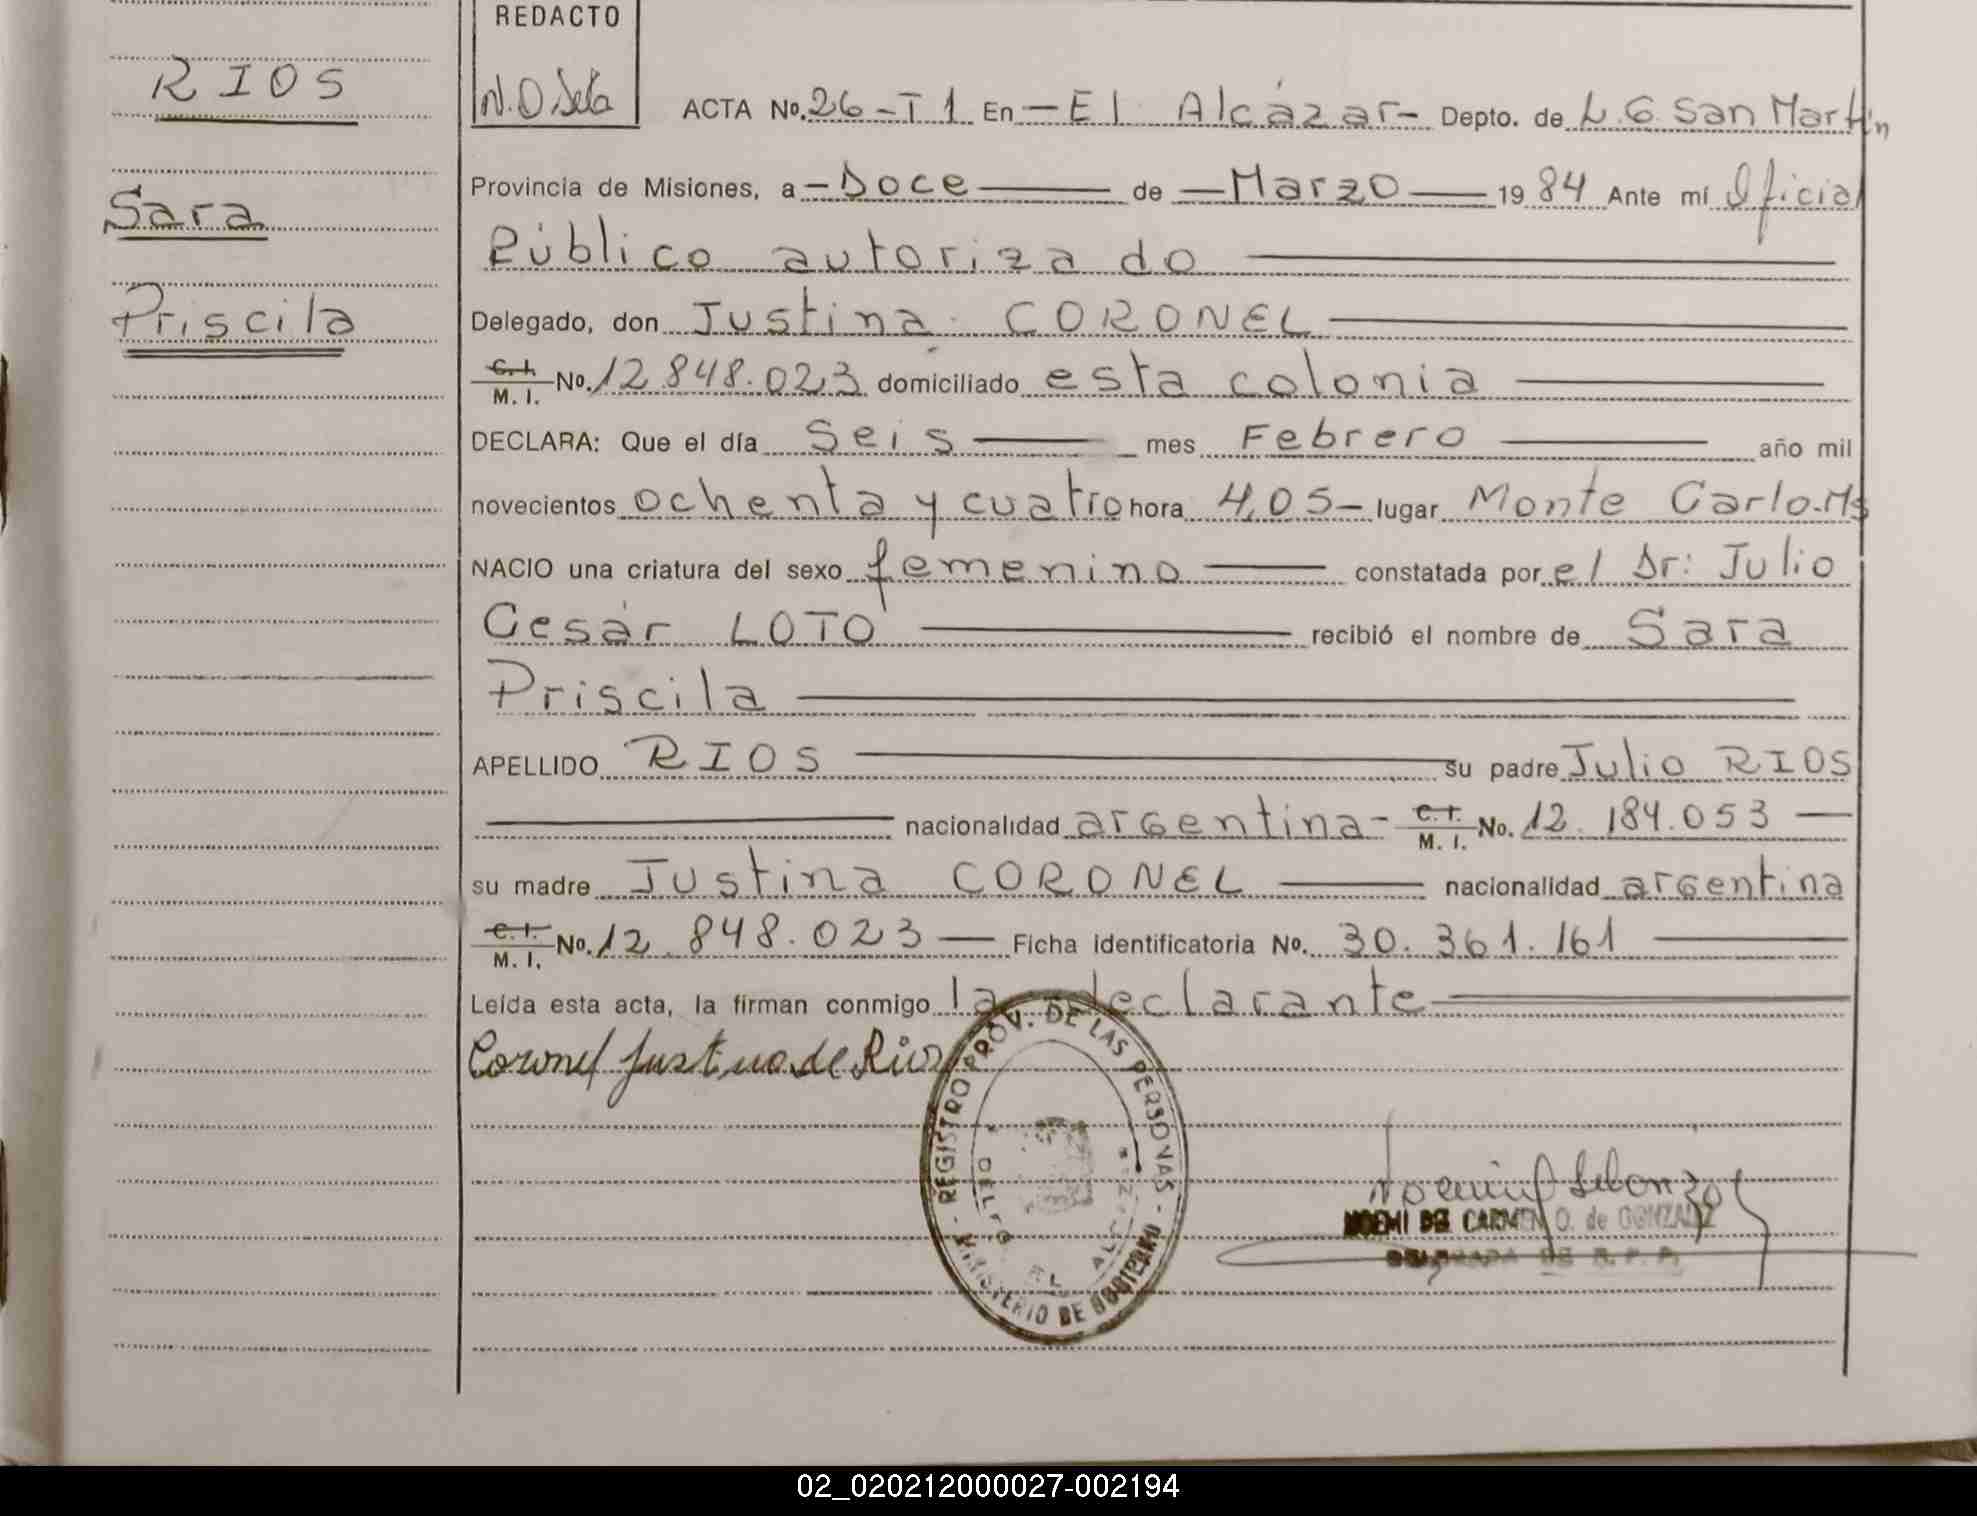 REDACTO
RIOS
Sara
Priscila
ACTA No. 26-T1 En - El Alcázar - Depto. de L. G. San Martín
Provincia de Misiones, a - Doce de Marzo 1984 Ante mí Oficial
Público autorizado
Delegado, don Justina CORONEL
C. I. M. I. No. 12.848.023 domiciliado esta colonia
DECLARA: Que el día Seis mes Febrero año mil
novecientos ochenta y cuatro hora 4,05 - lugar Monte Carlo. Ms
NACIO una criatura del sexo femenino constatada por el Dr: Julio
Cesár LOTO recibió el nombre de Sara
Priscila
APELLIDO RIOS su padre Julio RIOS
nacionalidad argentina - C. I. M. I. No. 12.184.053
su madre Justina CORONEL nacionalidad argentina
C. I. M. I. No. 12.848.023 Ficha identificatoria No. 30.361.161
Leída esta acta, la firman conmigo la declarante
Coronel Justina de Rios
- REGISTRO PROV. DE LAS PERSONAS -
MINISTERIO DE GOBIERNO
DELEG. EL ALCAZAR
NOEMI DEL CARMEN O. de GONZALEZ
DELEGADA DE R. P. P.
02_020212000027-002194